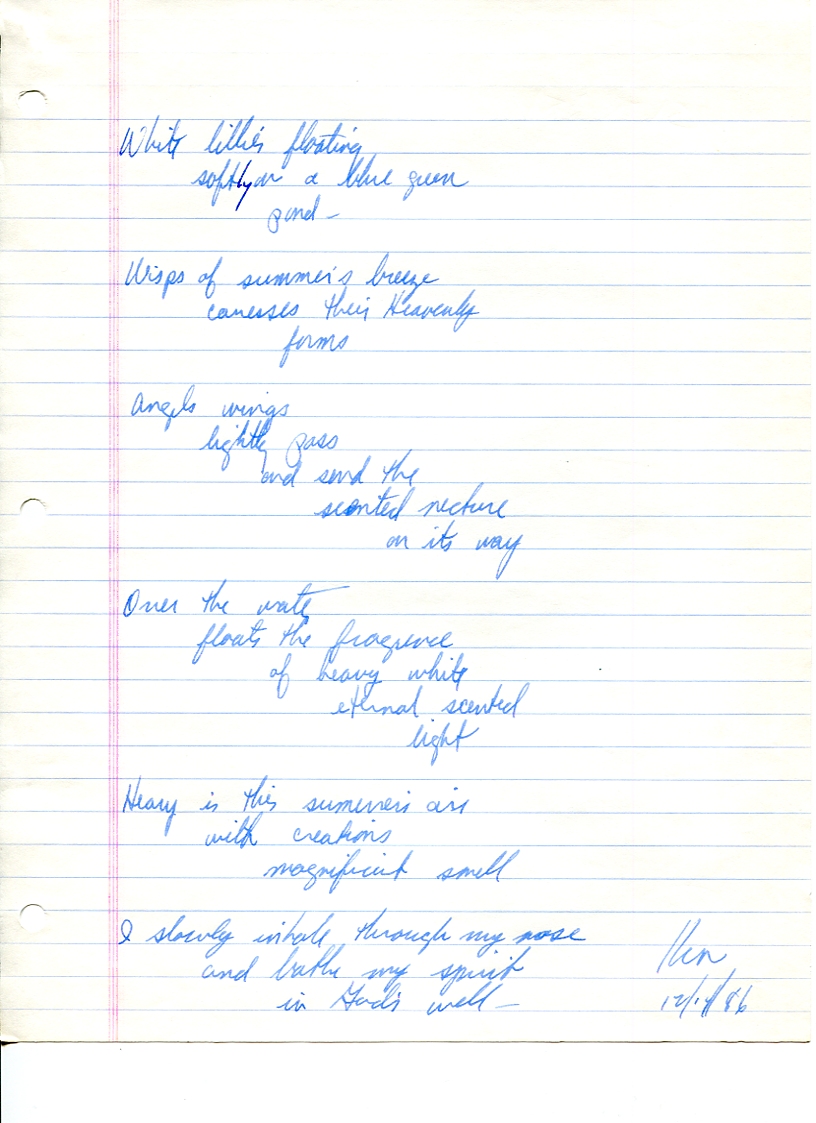 White lillies floating
softly on a blue green
pond –
Wisps of summer's breeze
caresses their Heavenly
forms
Angels wings
lightly pass
and send the
scented necture
on its way
Over the water
floats the fragrence
of heavy white
eternal scented
light
Heavy is this summer's air
with creations
magnificint smell
I slowly inhale through my nose
and bathe my spirit
in God's well –
Ken